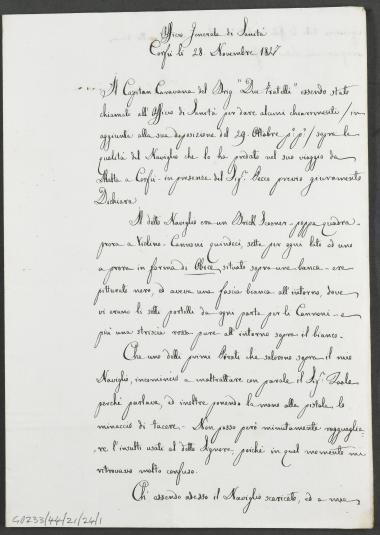 Officio Generale di Sanità
Corfù li 28. Novembre 1827
Il Capitan Caravana del Brig "Due Fratelli" essendo stato
chiamato all'Officio di Sanità per dare alcuni chiarimenti / in
aggiunta alla sua deposizione del 29. Ottobre pº. pº. / sopra la
qualità del Naviglio che lo ha predato nel suo viaggio da
Malta a Corfù - in presenza del Sigr. Zecco previo giuramento
Dichiara
Il detto Naviglio era un Brick Scooner - poppa quadra -
prova a Violino - Cannoni quindeci, sette per ogni lato ed uno
a prova in forma di Obice situato sopra una banca - era
pitturato nero, ed aveva una fascia bianca all'intorno, dove
vi erano li sette portelli da ogni parte per li Cannoni - e
più una striscia rossa pure all'intorno sopra il bianco.
Che uno delli primi Pirati che salirono sopra il mio
Naviglio, incominciò a maltrattare con parole il Sigr.
perché parlava, ed inoltre ponendo la mano alla pistola lo
minacciò di tacere. - Non posso però minutamente ragguaglia-
re l'insulti usati al detto Signore, poiché in quel momento mi
ritrovavo molto confuso.
Ch' essendo adesso il Naviglio scaricato, ed a mia
GO233/44/21/24/1